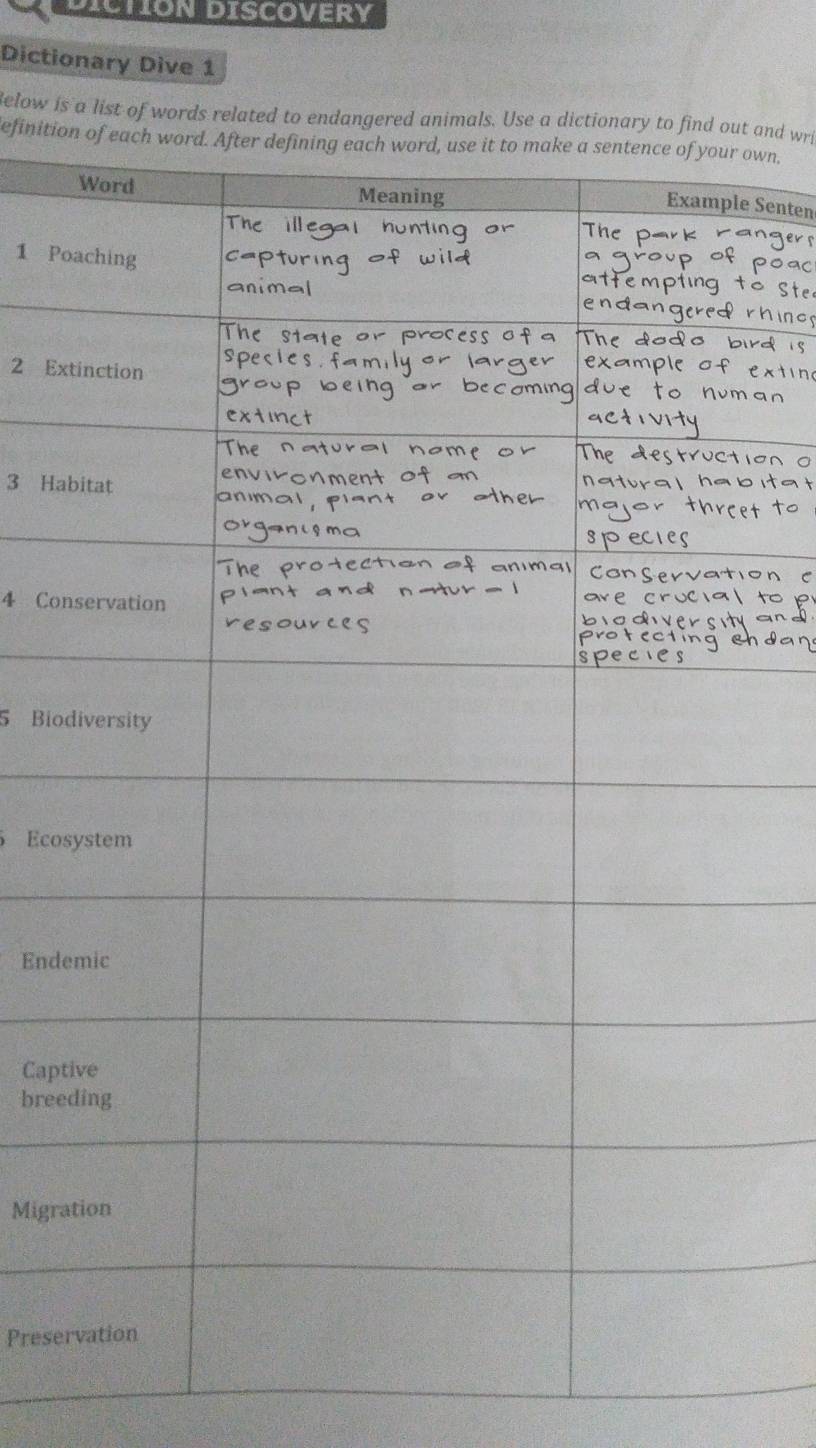 DICTION DISCOVERY
Dictionary Dive 1
Below is a list of words related to endangered animals. Use a dictionary to find out and wri
definition of each word. After defining each word, use it to make a sentence of your own.
Word Meaning Example Senten
1 Poaching
The illegal hunting or
capturing of wild
animal
The park rangers
a group of poac
attempting to stea
endangered rhinos
2 Extinction
The state or process of a
species. family or larger
group being or becoming
extinct
The dodo bird is
example of extinc
due to human
activity
3 Habitat
The natural home or
environment of an
animal, plant or other
organisma
The destruction o
natural habitat
major threet to
species
4 Conservation
The protection of animal
plant and natural
resources
conservation e
are crucial to pr
biodiversity and
protecting endang
species
5 Biodiversity
Ecosystem
Endemic
Captive
breeding
Migration
Preservation